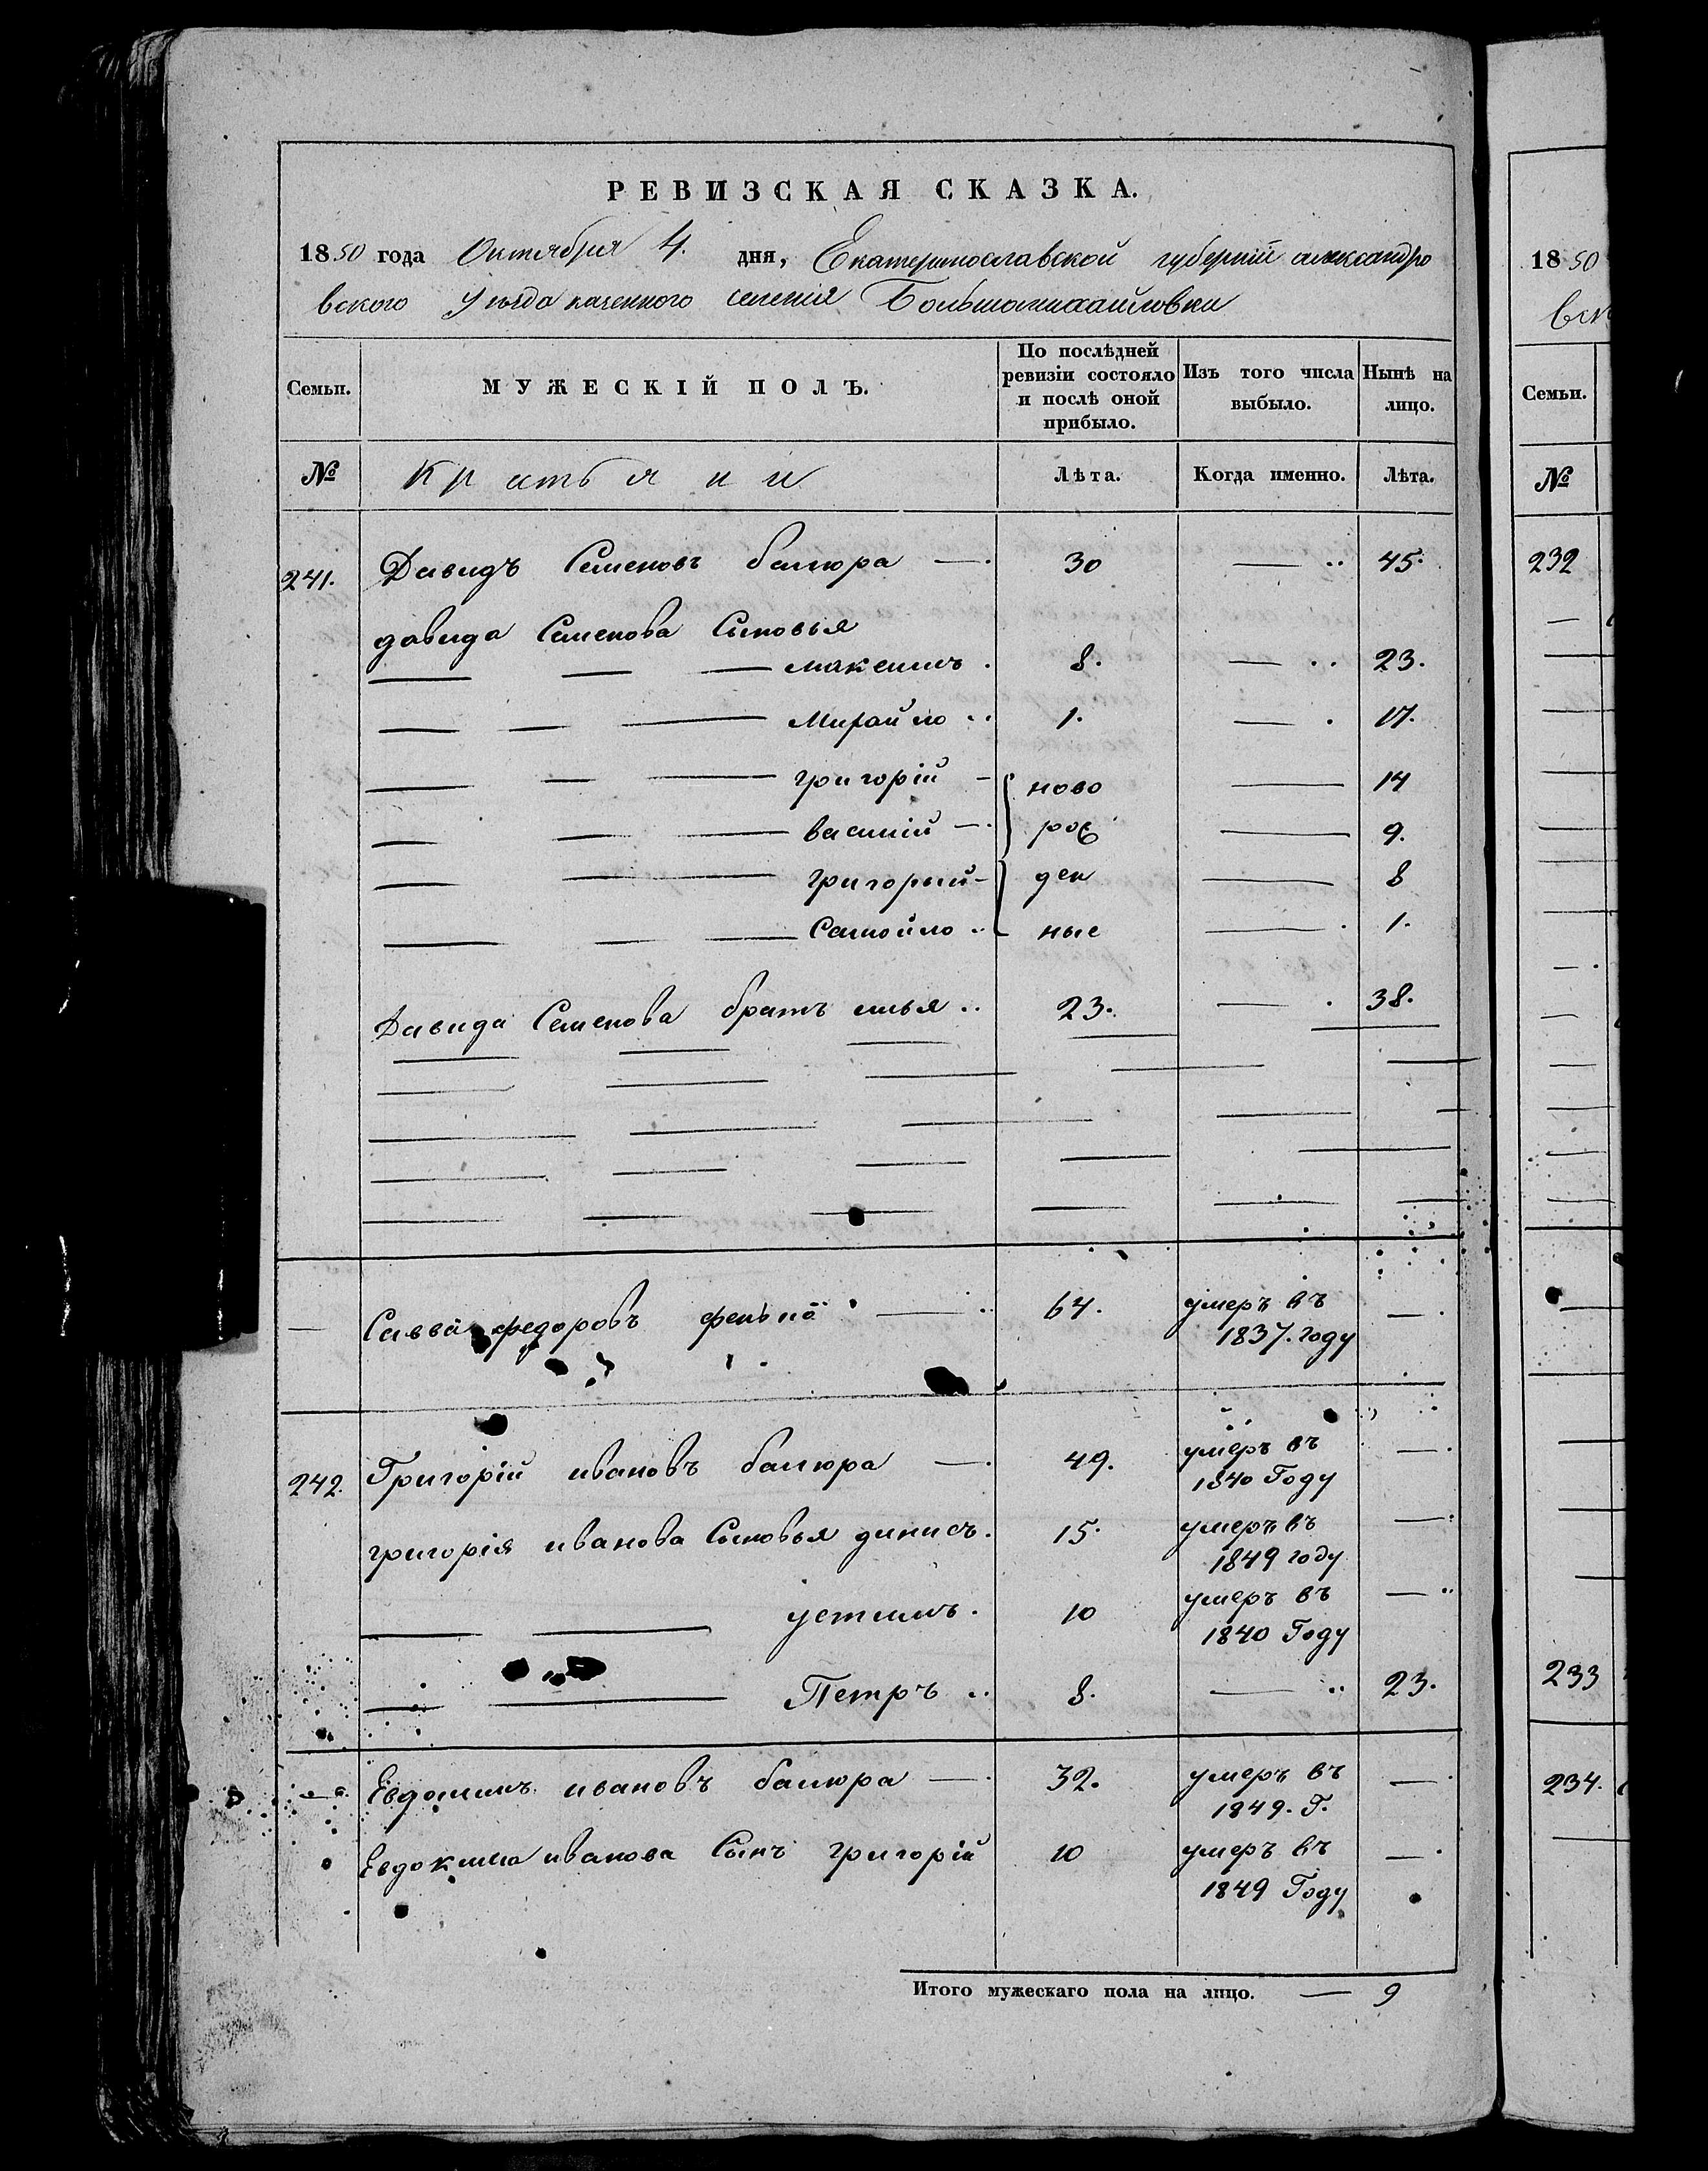 РЕВИЗСКАЯ СКАЗКА.
1850 года Октября 4. дня, Екатеринославской губерніи александро
вского Уѣзда казенного селенія Большомихайловки
Семьи.
МУЖЕСКІЙ ПОЛЪ.
По послѣдней ревизіи состояло и послѣ оной прибыло.
Изъ того числа выбыло.
Нынѣ на лицо.
№
Лѣта. Когда именно. Лѣта.
241. Давидъ Семеновъ балюра — 30 — 45.
давида Семенова Сыновья
максимъ. 8. — 23.
Михайло 1. — 17.
григорій ново — 14
василій рож — 9.
григорий ден — 8
Самойло ные — 1.
Давида Семенова братъ илья 23. — 38.
— Савва федоровъ 64. умеръ въ —
1837. году
242. Григорій ивановъ балюра — 49. умеръ въ —
1840 Году
григорія иванова Сыновья динисъ. 15. умеръ въ —
1849 году
устимъ. 10 умеръ въ —
1840 Году
Петръ 8. — 23.
— Евдокимъ ивановъ балюра — 32. умеръ въ —
1849. Г.
Евдокима иванова Сынъ григорій 10 умеръ въ —
1849 Году
Итого мужескаго пола на лицо. — 9
1850
Семьи.
№
232
233
234.